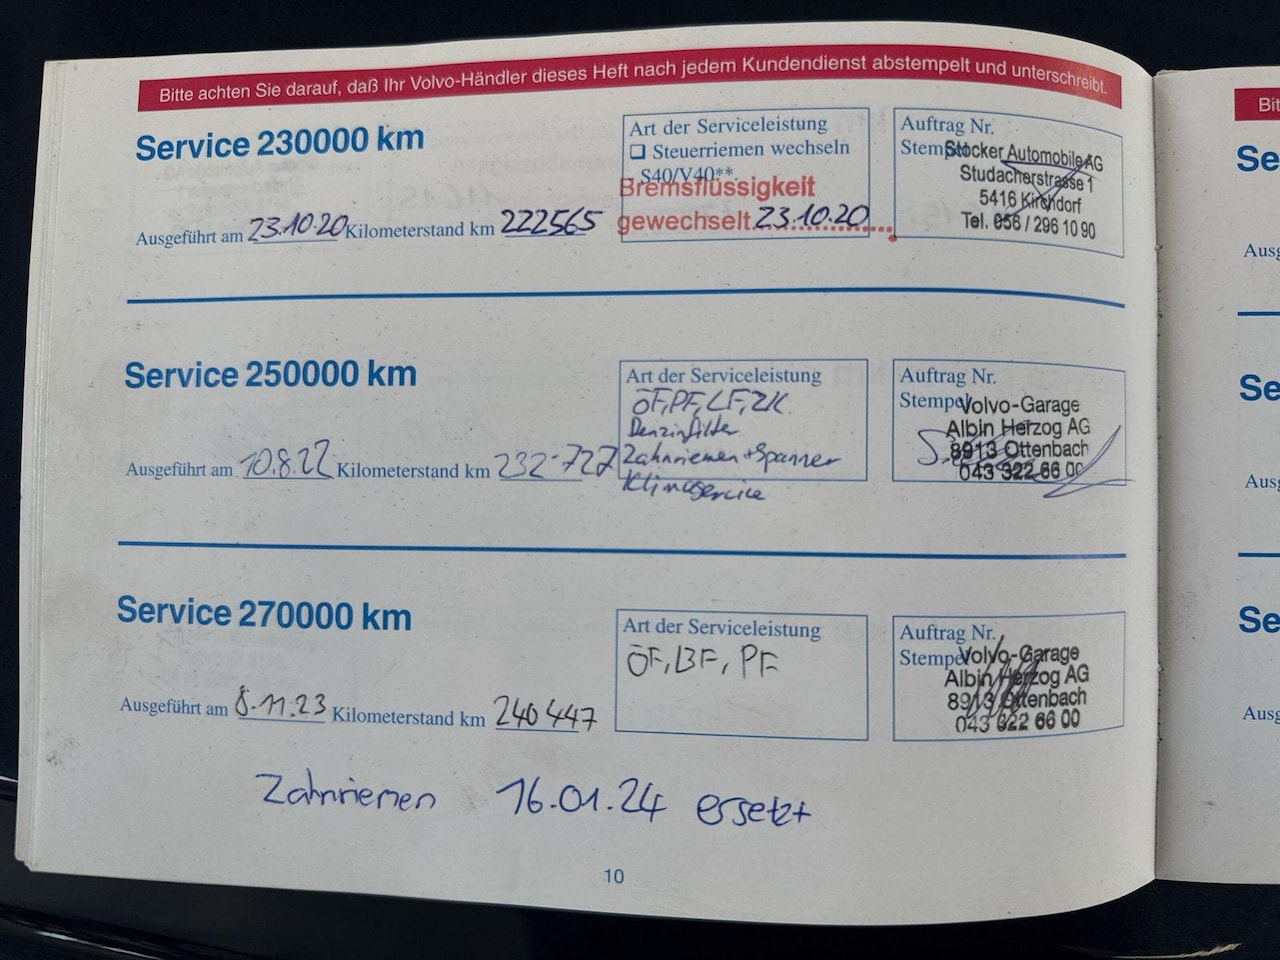 Bitte achten Sie darauf, daß Ihr Volvo-Händler dieses Heft nach jedem Kundendienst abstempelt und unterschreibt.
Service 230000 km
Ausgeführt am 23.10.20 Kilometerstand km 222565
Art der Serviceleistung
❏ Steuerriemen wechseln
S40/V40**
Bremsflüssigkeit
gewechselt 23.10.20
Auftrag Nr.
Stempel
Stocker Automobile AG
Studacherstrasse 1
5416 Kirchdorf
Tel. 056 / 296 10 90
Service 250000 km
Ausgeführt am 10.8.22 Kilometerstand km 232-727
Art der Serviceleistung
ÖF, PF, LF, ZK
Benzinfilter
Zahnriemen + Spanner
Klimaservice
Auftrag Nr.
Stempel
Volvo-Garage
Albin Herzog AG
8913 Ottenbach
043 322 66 00
Service 270000 km
Ausgeführt am 8.11.23 Kilometerstand km 240447
Art der Serviceleistung
ÖF, BF, PF
Auftrag Nr.
Stempel
Volvo-Garage
Albin Herzog AG
8913 Ottenbach
043 322 66 00
Zahnriemen 16.01.24 ersetzt
10
Bit
Se
Ausg
Se
Ausg
Se
Ausg